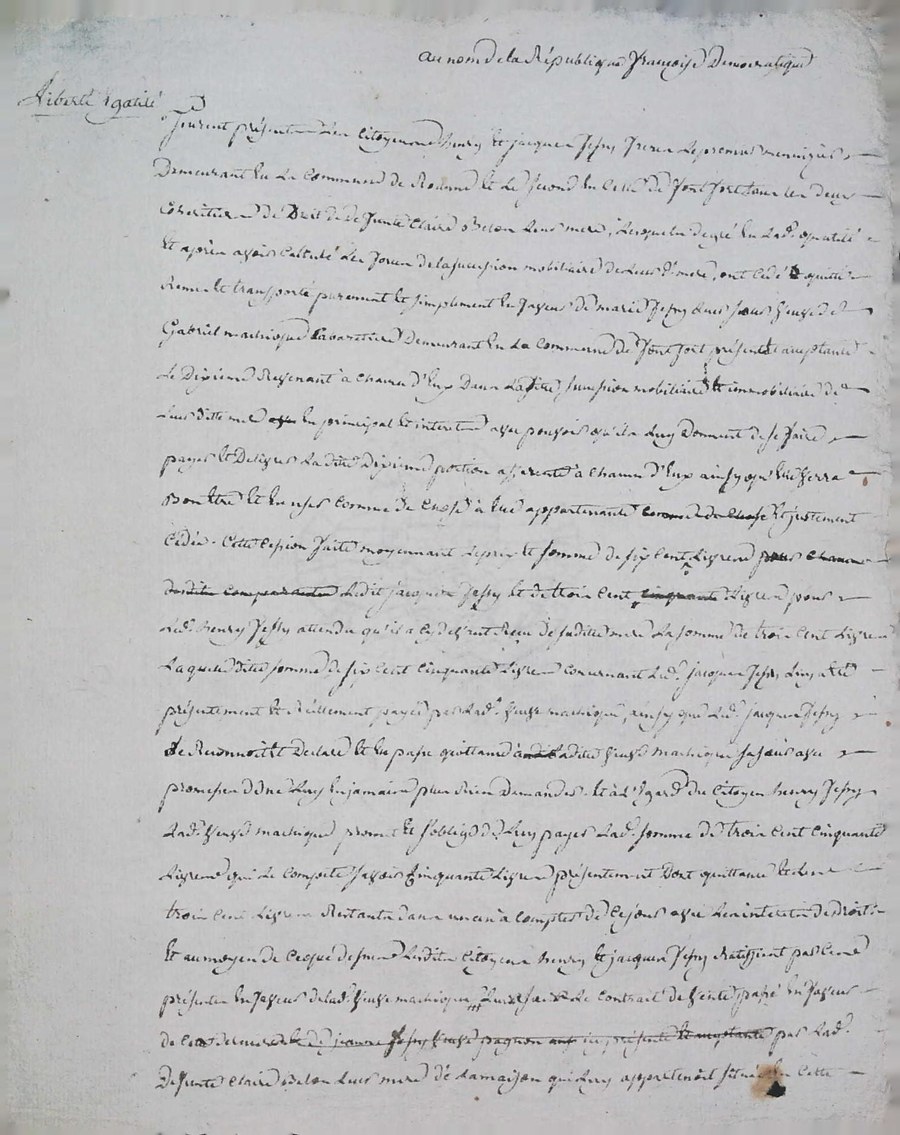 au nom de la République françoise Democratique
Liberté Egalité
furent présents les Citoyens henry et jacques Jessy freres le premier
Demeurant en la Commune de et le second en celle de font fort tous les deux
Coheritiers de Droit de defunte Claire leur mere, lesquels de gré en lad. qualité
et après avoir calculé les forces de la sucession mobiliaire de leurd. mere, ont cedé quitté
Remis et transporté purement et simplement en faveur de marie Jessy leur sœur veuve de
Gabriel Demeurant en la Commune de font fort présente acceptante
le Dixieme Revenant à chacun d'Eux Dans Ladite sucession mobiliaire et immobiliaire de
leur ditte mere en principal et interets avec pouvoir qu'ils Luy Donnent de se faire
payer et Delivrer Ladite Dixieme portion afferente à chacun d'Eux ainsy qu'elle verra
Bon être et en user Comme de Chose à Elle appartenante Comme de Chose et justement
Cedée. Cette Cession faite moyennant le prix et somme de six Cent Livres pour Chacun
desdits Comparants Ledit jacques Jessy et de trois Cent Cinquante Livres pour
Led. henry Jessy attendu qu'il a cy devant Reçu de sadite mere La somme de trois Cent Livres
Laquelle ditte somme de six Cent Cinquante Livres Concernant Led. jacques Jessy Luy a été
présentement et Réellement payée par Lad. veuve ainsy que Led. jacques Jessy
le Reconnoit et Declare et en passe quittance Ladite veuve sa sœur avec
promesse de ne Luy en jamais plus Rien Demander. et à L'Egard du Citoyen henry Jessy
Lad. veuve promet et s'oblige de Luy payer Lad. somme de trois Cent Cinquante
Livres qui Le Compete savoir Cinquante Livres présentement Dont quittance et les
trois Cent Livres Restants dans un an à Compter de Ce jour avec Les interets de Droit
et au moyen de Ce que dessus Lesdits Citoyens henry et jacques Jessy Ratifient par Ces
présentes en faveur de lad. veuve Le Contrait de vente passé en faveur
de Jessy veuve pagnon icy présente et acceptante par Lad.
Defunte Claire leur mere de La maison qui Luy appartenoit située en Cette